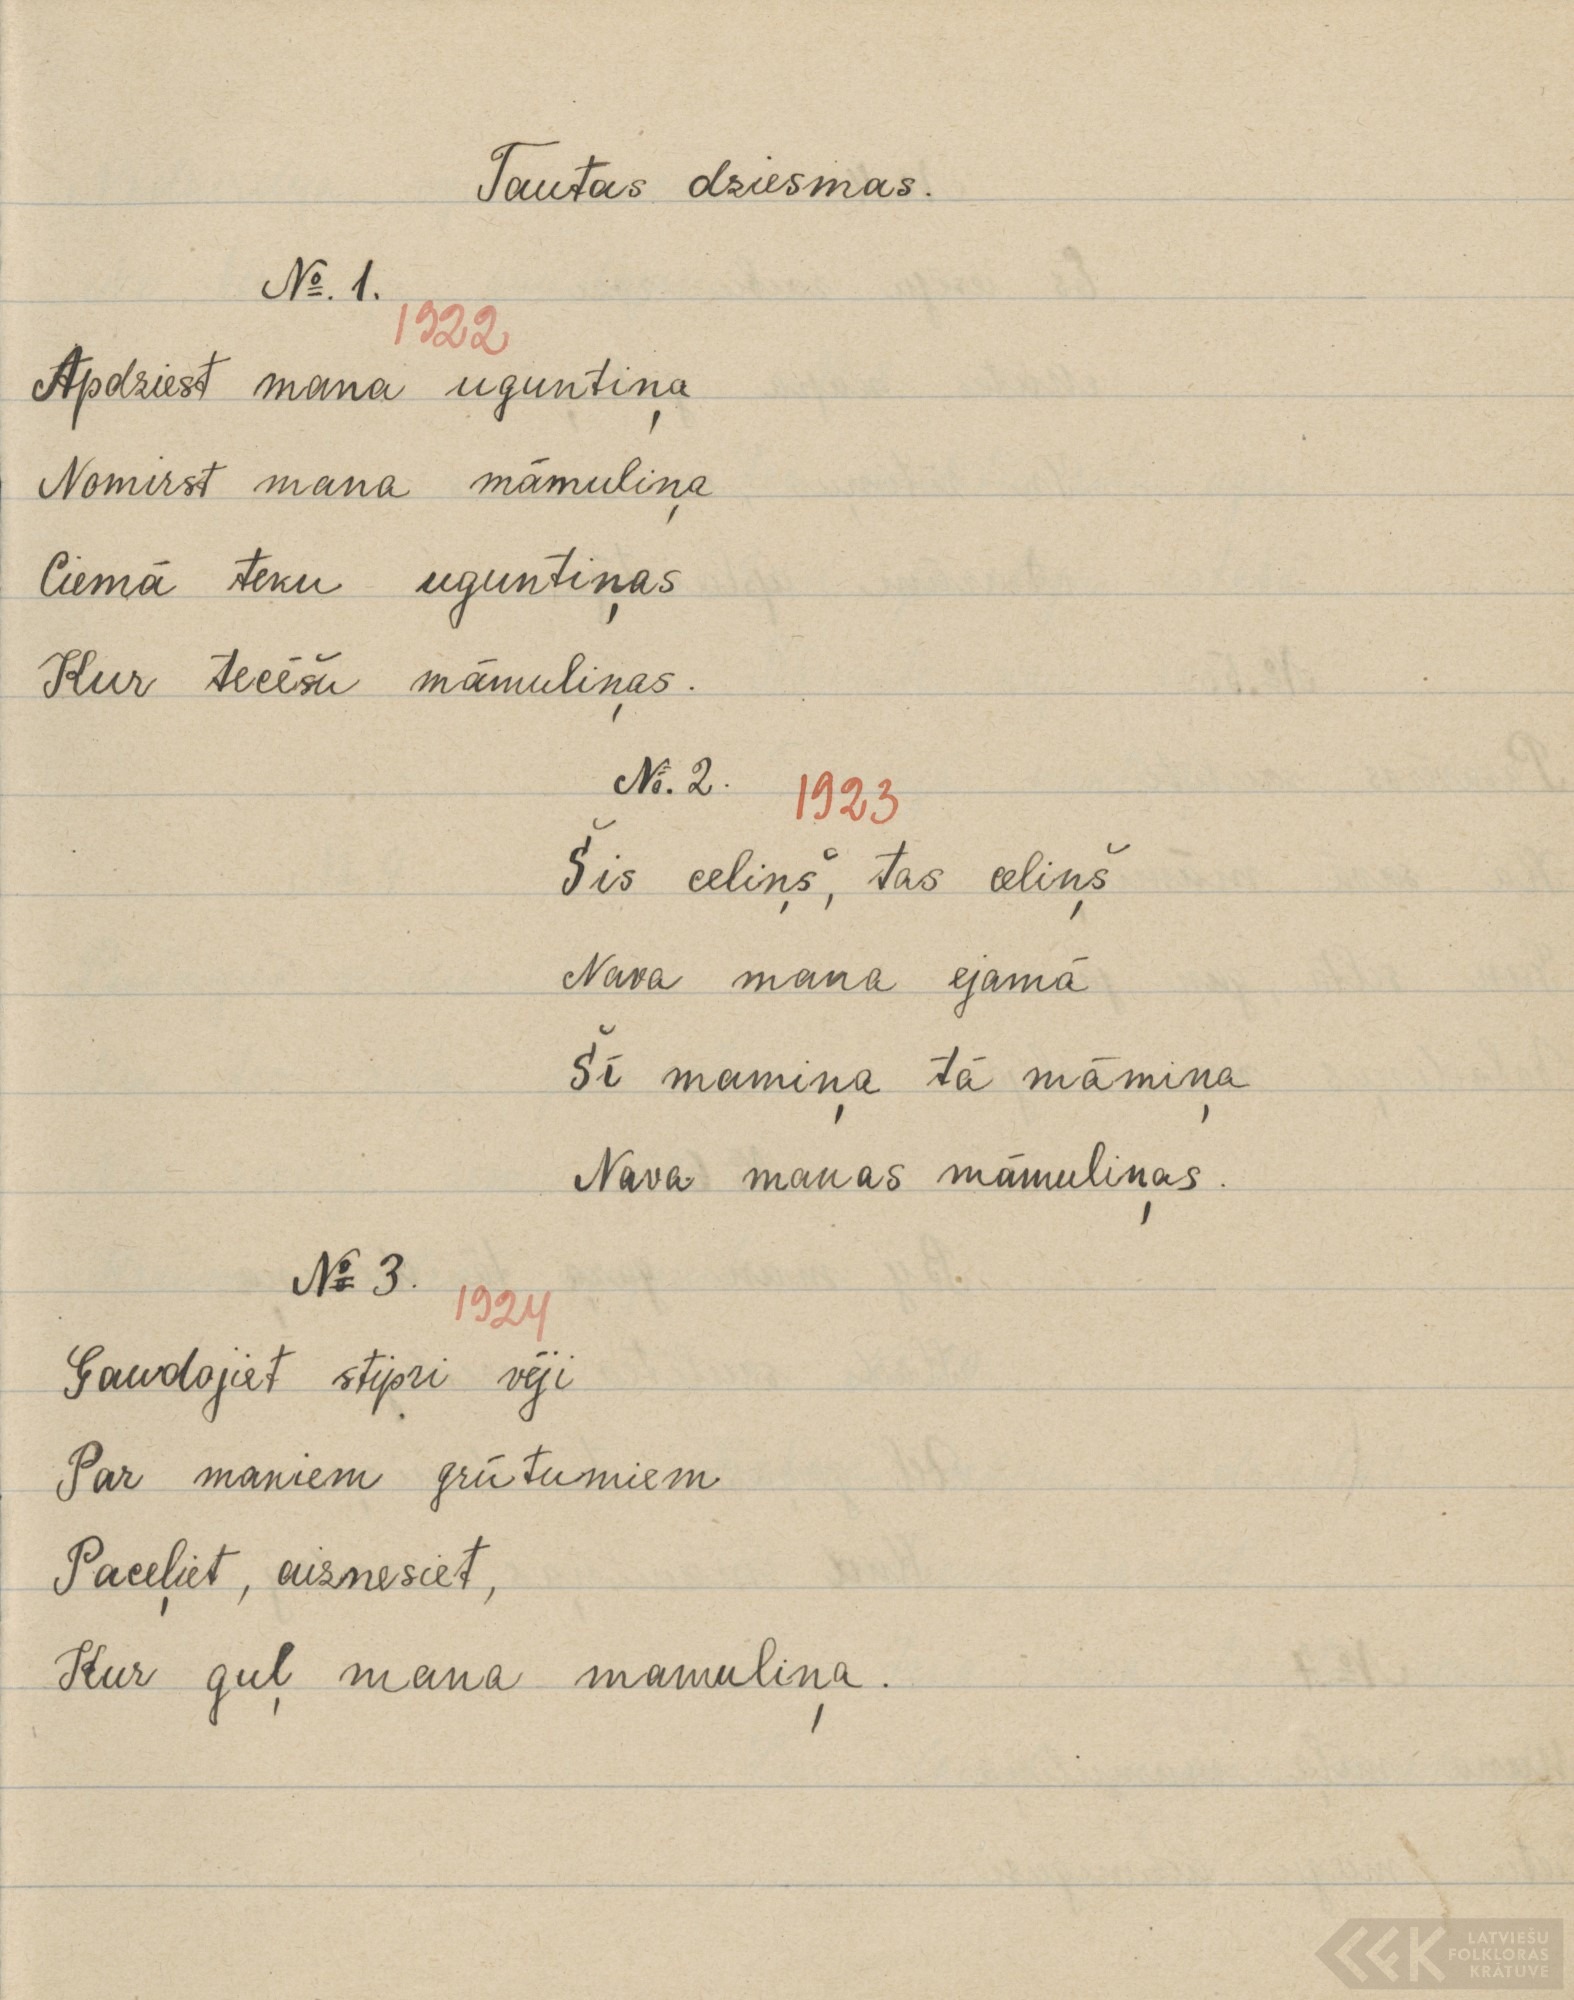 Tautas dziesmas.
№. 1.
1922
Apdziest mana uguntiņa
Nomirst mana māmuliņa
Ciemā teku uguntiņas
Kur tecēšu māmuliņas.
№. 2.
1923
Šis celiņš, tas celiņš
Nava mana ejamā
Šī mamiņa tā māmiņa
Nava manas māmuliņas.
№ 3.
1924
Gaudojiet stipri vēji
Par maniem grūtumiem
Paceļiet, aiznesiet,
Kur guļ mana mamuliņa.
LATVIEŠU
FOLKLORAS
KRĀTUVE